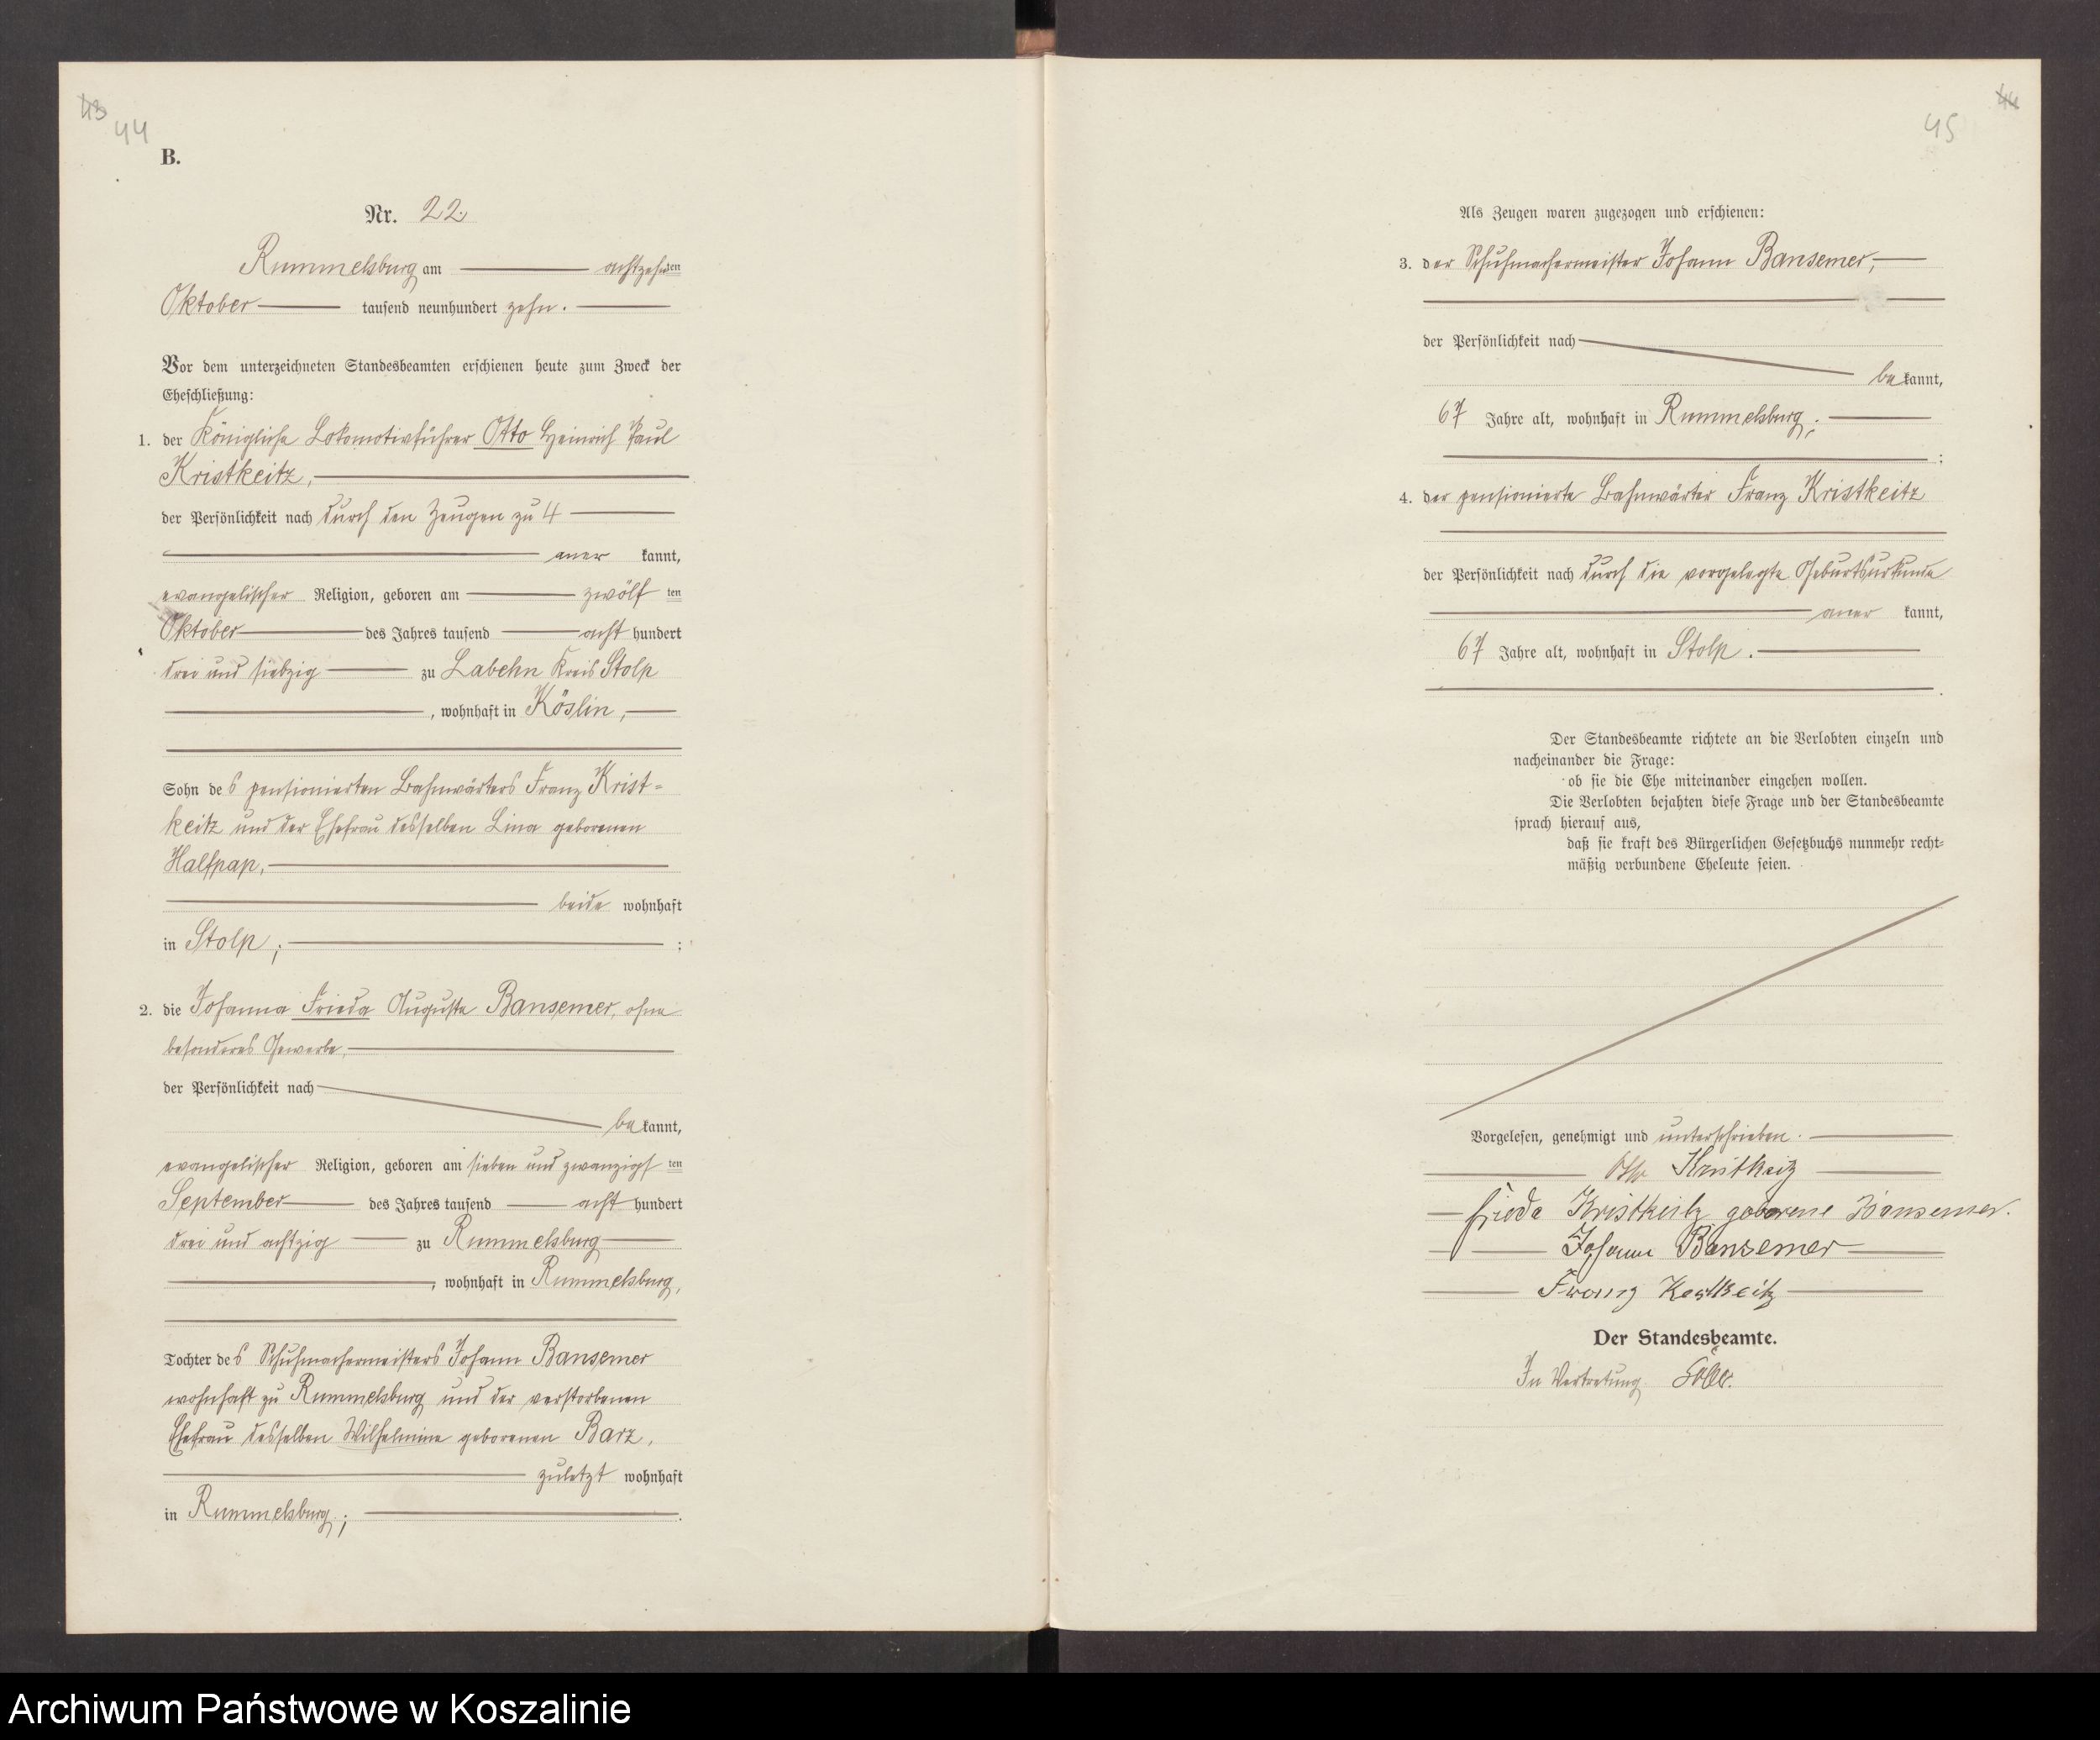 43
44
B.
Nr. 22.
Rummelsburg am achtzehnten
Oktober tausend neunhundert zehn.
Vor dem unterzeichneten Standesbeamten erschienen heute zum Zweck der
Eheschließung:
1. der Königliche Lokomotivführer Otto Heinrich Paul
Kristkeitz,
der Persönlichkeit nach durch den Zeugen zu 4
aner kannt,
evangelischer Religion, geboren am zwölf ten
Oktober des Jahres tausend acht hundert
drei und siebzig zu Labehn Kreis Stolp
, wohnhaft in Köslin,
Sohn des pensionierten Bahnwärters Franz Krist=
keitz und der Ehefrau desselben Lina geborenen
Halfpap,
beide wohnhaft
in Stolp; ;
2. die Johanna Frieda Auguste Bansemer, ohne
besonderes Gewerbe,
der Persönlichkeit nach
be kannt,
evangelischer Religion, geboren am sieben und zwanzigs ten
September des Jahres tausend acht hundert
drei und achtzig zu Rummelsburg
, wohnhaft in Rummelsburg,
Tochter des Schuhmachermeisters Johann Bansemer
wohnhaft zu Rummelsburg und der verstorbenen
Ehefrau desselben Wilhelmine geborenen Barz,
zuletzt wohnhaft
in Rummelsburg; .
44
45
Als Zeugen waren zugezogen und erschienen:
3. der Schuhmachermeister Johann Bansemer,
der Persönlichkeit nach
be kannt,
67 Jahre alt, wohnhaft in Rummelsburg;
;
4. der pensionierte Bahnwärter Franz Kristkeitz
der Persönlichkeit nach durch die vorgelegte Geburtsurkunde
aner kannt,
67 Jahre alt, wohnhaft in Stolp.
.
Der Standesbeamte richtete an die Verlobten einzeln und
nacheinander die Frage:
ob sie die Ehe miteinander eingehen wollen.
Die Verlobten bejahten diese Frage und der Standesbeamte
sprach hierauf aus,
daß sie kraft des Bürgerlichen Gesetzbuchs nunmehr recht=
mäßig verbundene Eheleute seien.
Vorgelesen, genehmigt und unterschrieben.
Otto Kristkeitz
Frieda Kristkeitz geborene Bansemer.
Johann Bansemer
Franz Kristkeitz
Der Standesbeamte.
In Vertretung
Archiwum Państwowe w Koszalinie